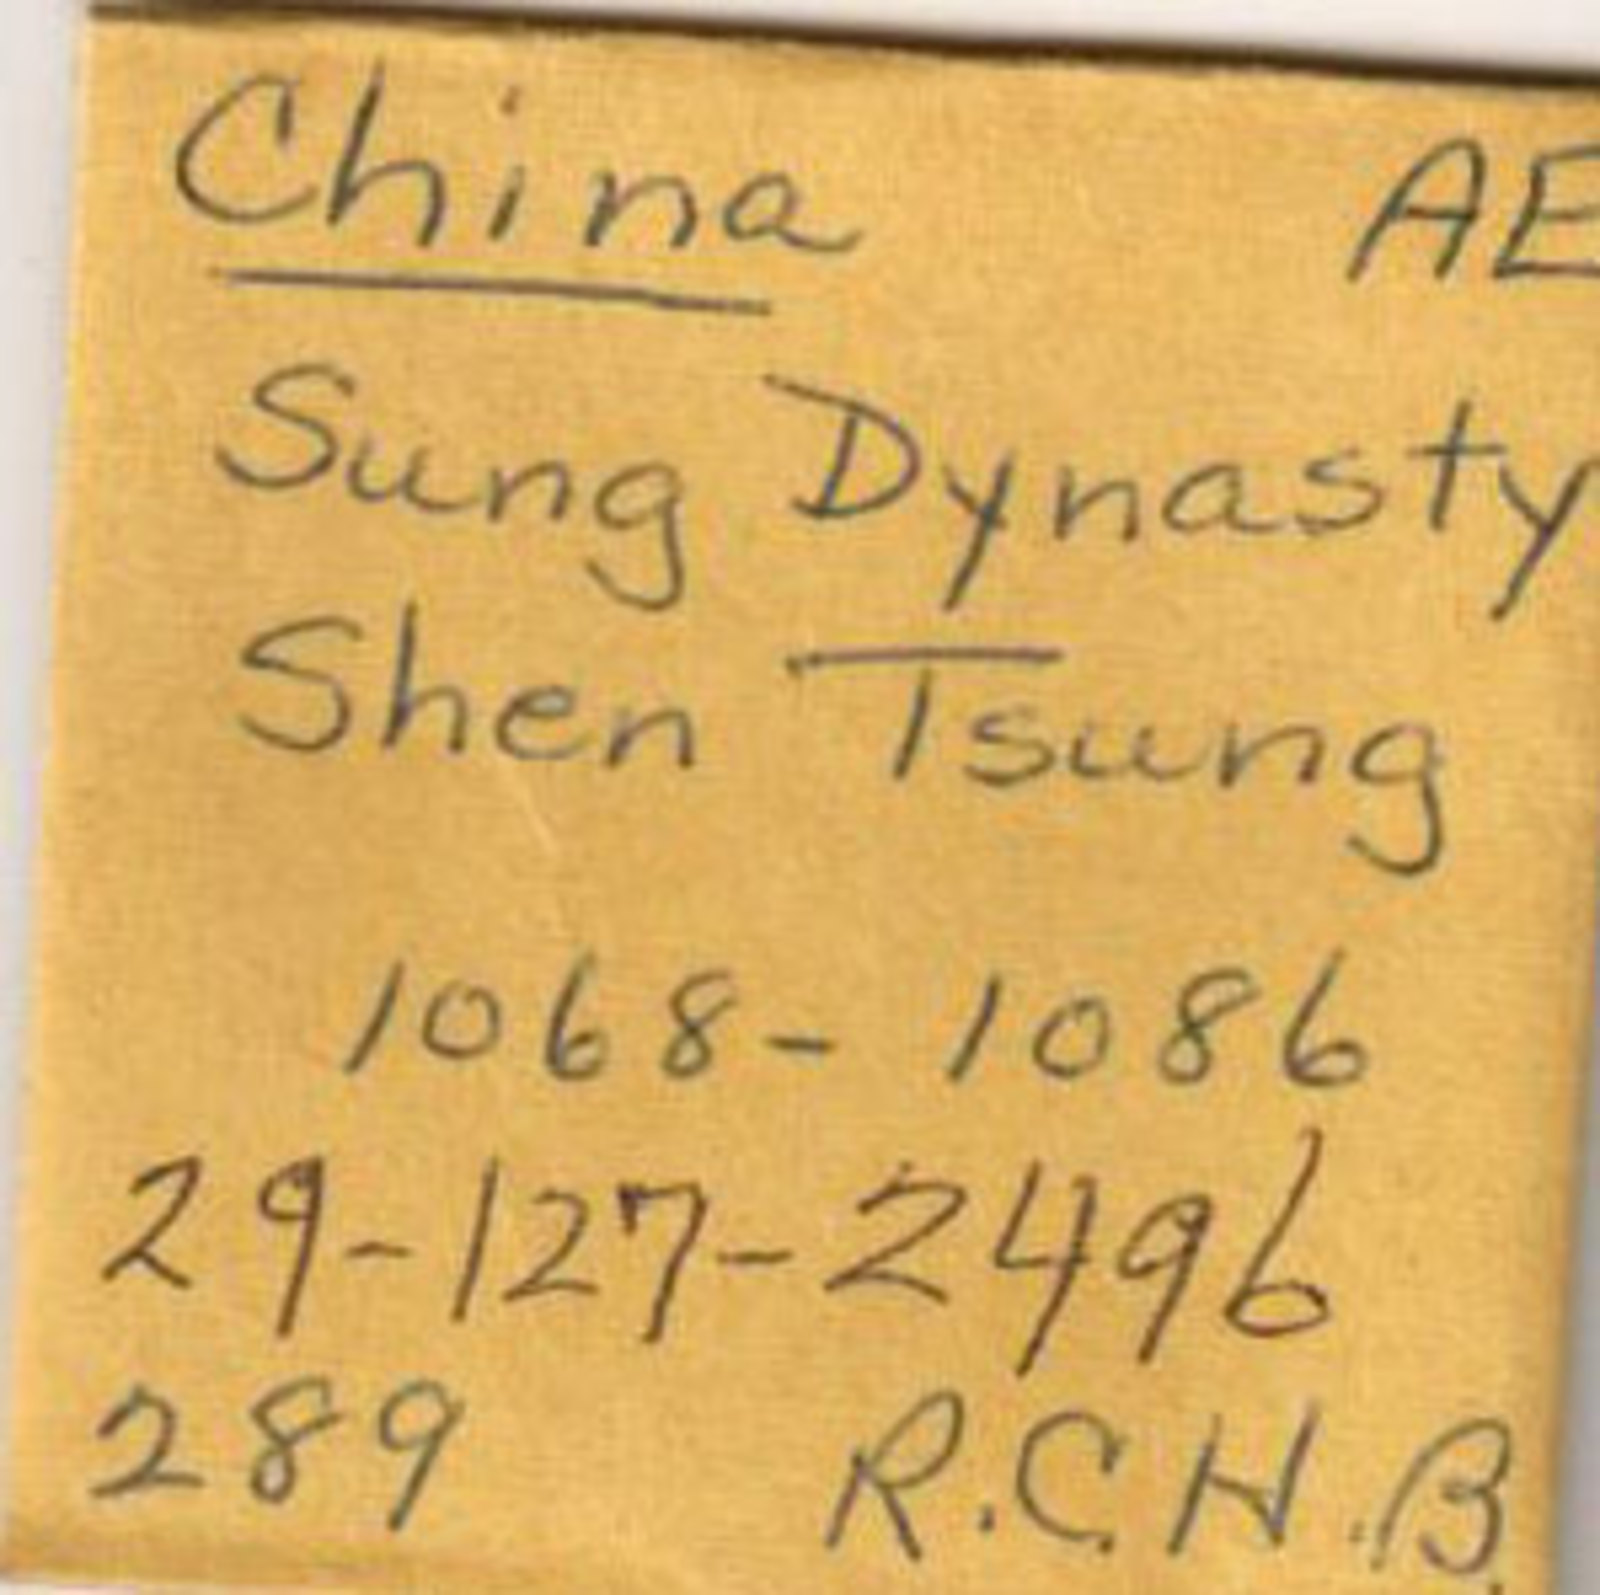 China AE
Sung Dynasty
Shen Tsung
1068-1086
29-127-2496
289 R.C.H.B.